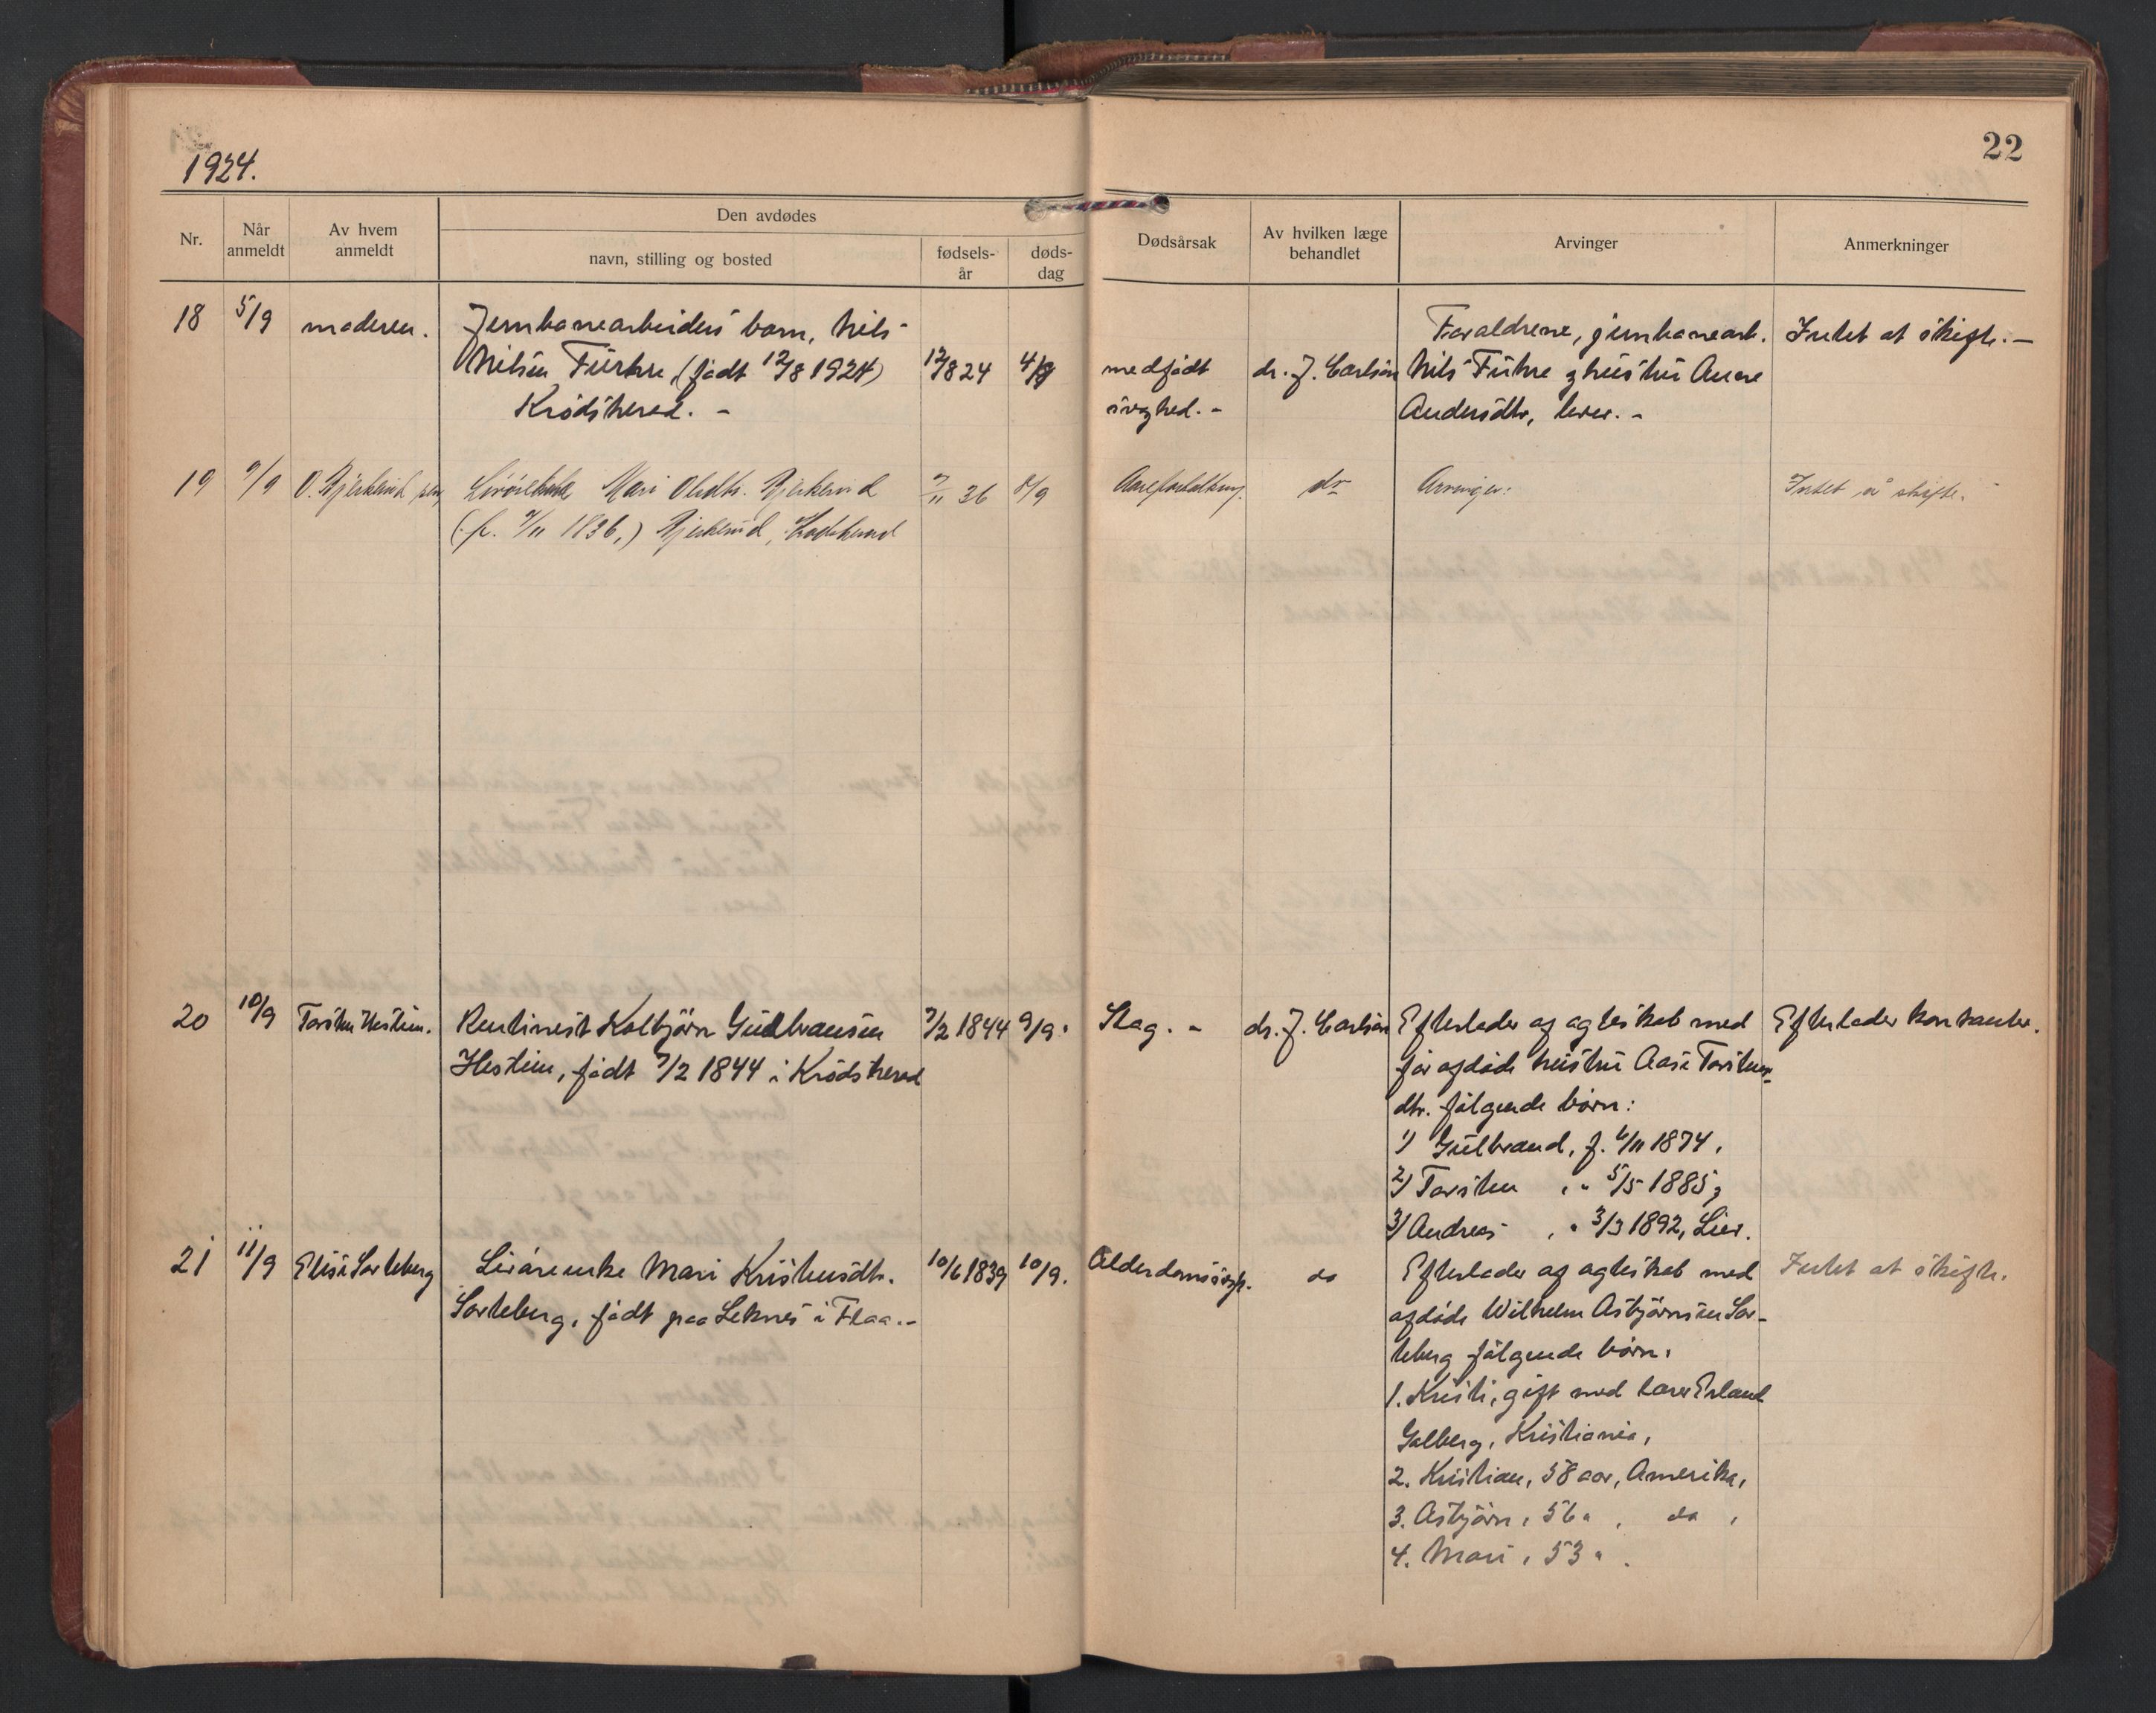 22
1924.
Nr.
Når anmeldt
Av hvem anmeldt
Den avdødes
navn, stilling og bosted
fødsels-år
døds-dag
Dødsårsak
Av hvilken læge behandlet
Arvinger
Anmerkninger
18 5/9 moderen. Jernbanearbeiders barn, Nils
Nilsen (født 12/8 1924) 12/8 24
Krødsherad. -
medfødt dr. J. Carlsen
svaghed. -
Forældrene, jernbanearb.
Nils hustru Anne
Andersdtr, lever. -
Intet at skifte. -
19 9/9 O. Bjerkerud Mari Olsdtr. Bjerkerud 7/11 36 8/9
(f. 7/11 1836,) Bjerkerud, Krødsherad
Aareforkalkning. do
Arvinger:
Intet å skifte.
20 10/9 Torsten Hestein. Rentinist Kolbjørn Gulbransen 7/2 1844 9/9.
Hestein, født 7/2 1844 i Krødsherad
Slag. - dr. J. Carlsen
Efterlader af ægteskab med
før afdøde hustru Aase Torstens-
dtr. følgende børn:
1) Gulbrand, f. 6/11 1874,
2) Torsten, " 5/5 1885,
3) Andreas, " 3/3 1892, Lier.
Efterlader kontanter.
21 11/9 Elise Sorteberg Livøreenke Mari Kristensdtr. 10/6 1839 10/9.
Sorteberg, født paa Leknes i Flaa. -
Alderdomssvagh. do
Efterlader af ægteskab med
afdøde Wilhelm Asbjørnsen Sor-
teberg følgende børn:
1. Kristi, gift med lærer Erland
Gulberg, Kristiania,
2. Kristian, 58 aar, Amerika,
3. Asbjørn, 56 " , do ,
4. Mari, 53 " .
Intet at skifte.